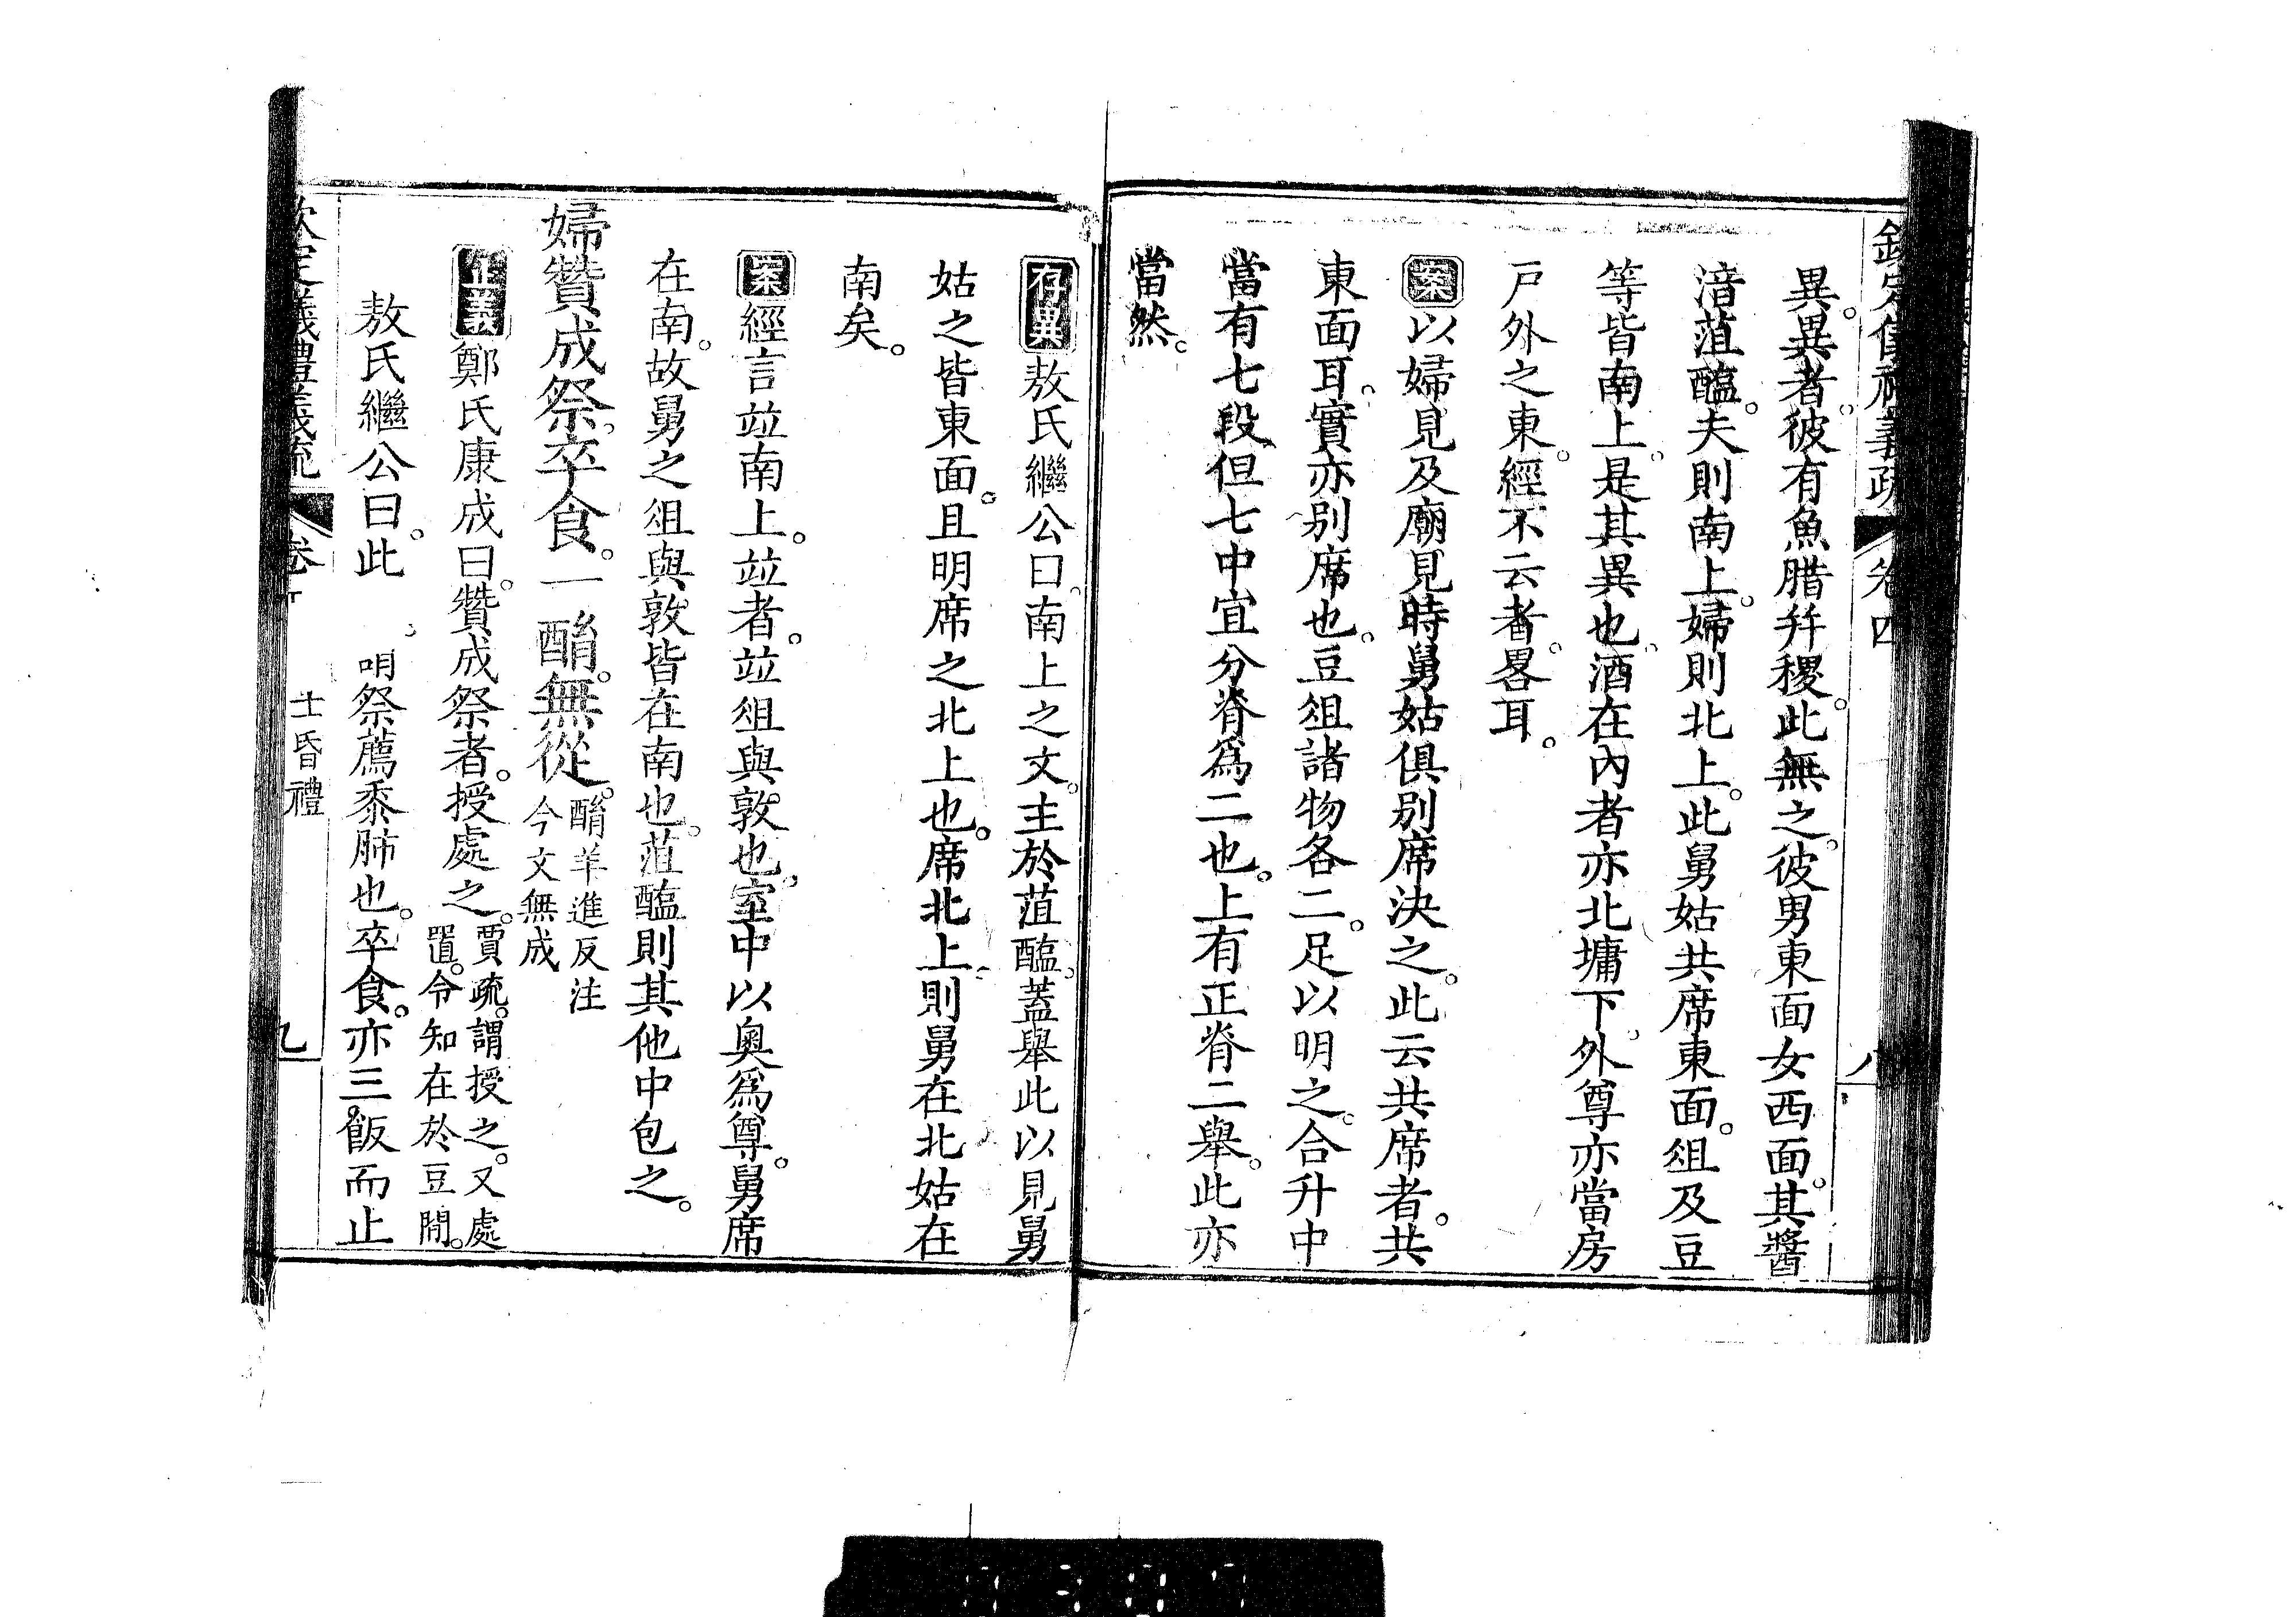 義疏 卷四 八
異。異者。彼有魚腊幷稷。此無之。彼男東面女西面。其醬
湆菹醢。夫則南上。婦則北上。此舅姑共席東面。俎及豆
等皆南上。是其異也。酒在內者亦北墉下。外尊亦當房
戶外之東。經不云者。畧耳。
案以婦見及廟見時舅姑俱別席決之。此云共席者。共
東面耳。實亦別席也。豆俎諸物各二。足以明之。合升中
當有七段但七中宜分脊爲二也。上有正脊二舉。此亦
當然。
存異敖氏繼公曰。南上之文。主於菹醢。蓋舉此以見舅
姑之皆東面。且明席之北上也。席北上。則舅在北姑在
南矣。
案經言竝南上。竝者。竝俎與敦也。室中以奧爲尊。舅席
在南。故舅之俎與敦皆在南也。菹醢則其他中包之。
婦贊成祭。卒食。一酳。無從。酳羊進反注
今文無成
正義鄭氏康成曰。贊成祭者。授處之。賈疏。謂授之。又處
置。令知在於豆閒。
敖氏繼公曰。此 祭薦黍肺也。卒食。亦三飯而止
儀禮義疏 卷 士昏禮 九